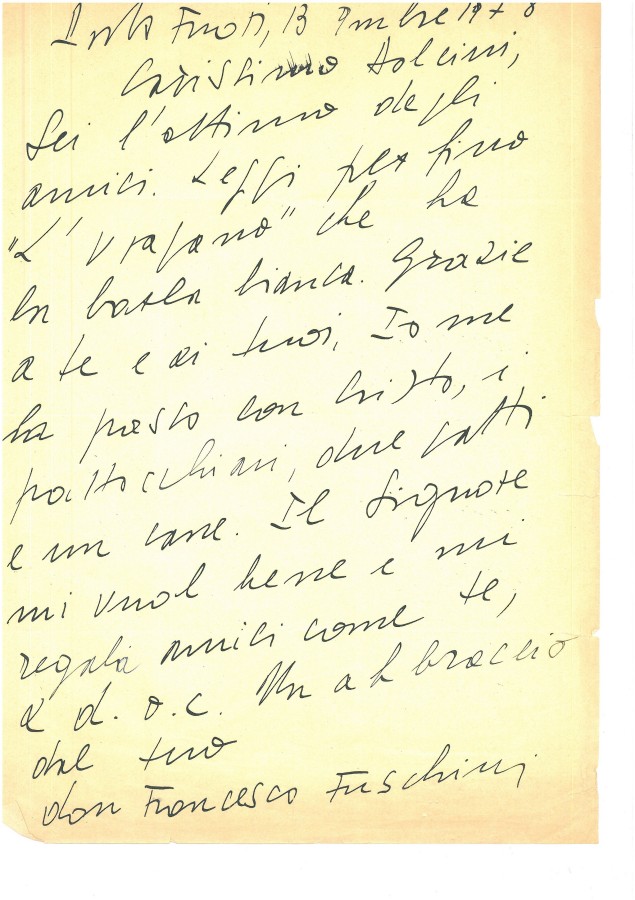 Porto Fuori, 13 9mbre 1978
Carissimo Dolcini,
Sei l'ottimo degli
amici. Leggi perfino
"L'Uragano" che ha
la barba bianca. Grazie
a te e ai tuoi. Io me
la passo con Cristo, i
parrocchiani, due gatti
e un cane. Il Signore
mi vuol bene e mi
regala amici come te,
a d.o.c. Un abbraccio
dal tuo
don Francesco Fuschini